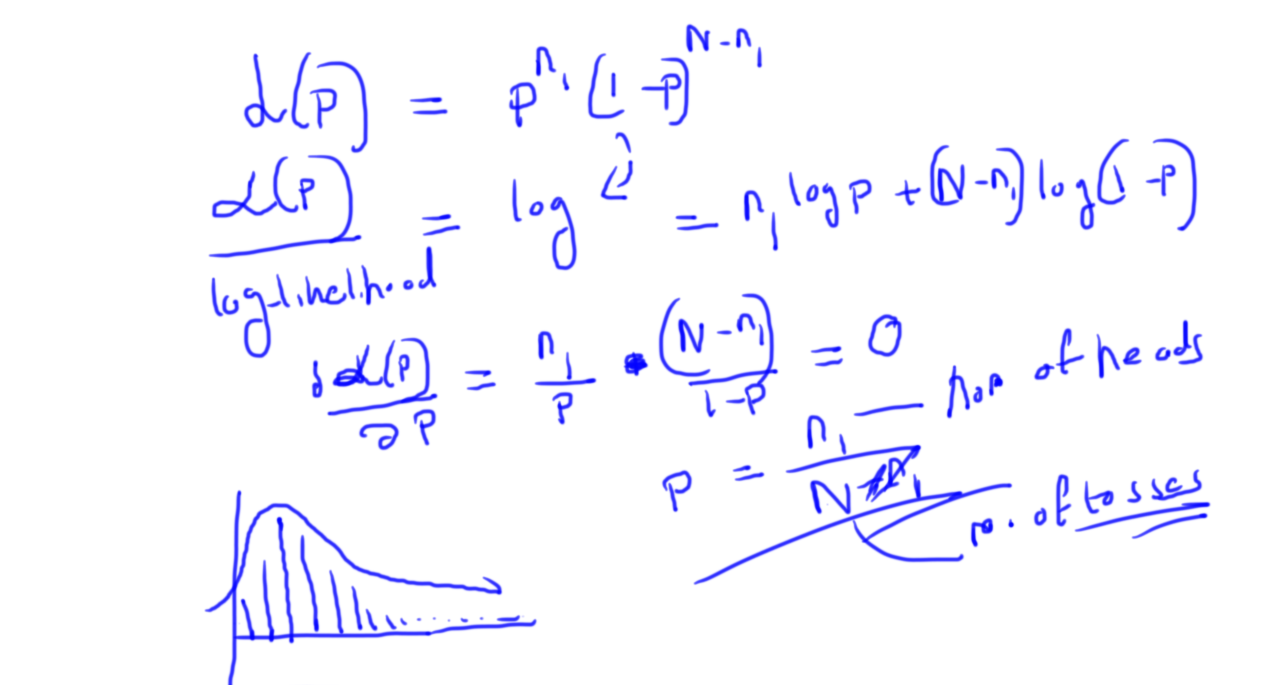 L(P) = p^{n₁} (1-P)^{N-n₁}
L(P) = log = n₁ log P + (N-n₁) log(1-P)
log-likelihood
∂L(P)/∂P = n₁/P - (N-n₁)/1-P = 0
P = n₁/N no. of heads
no. of tosses